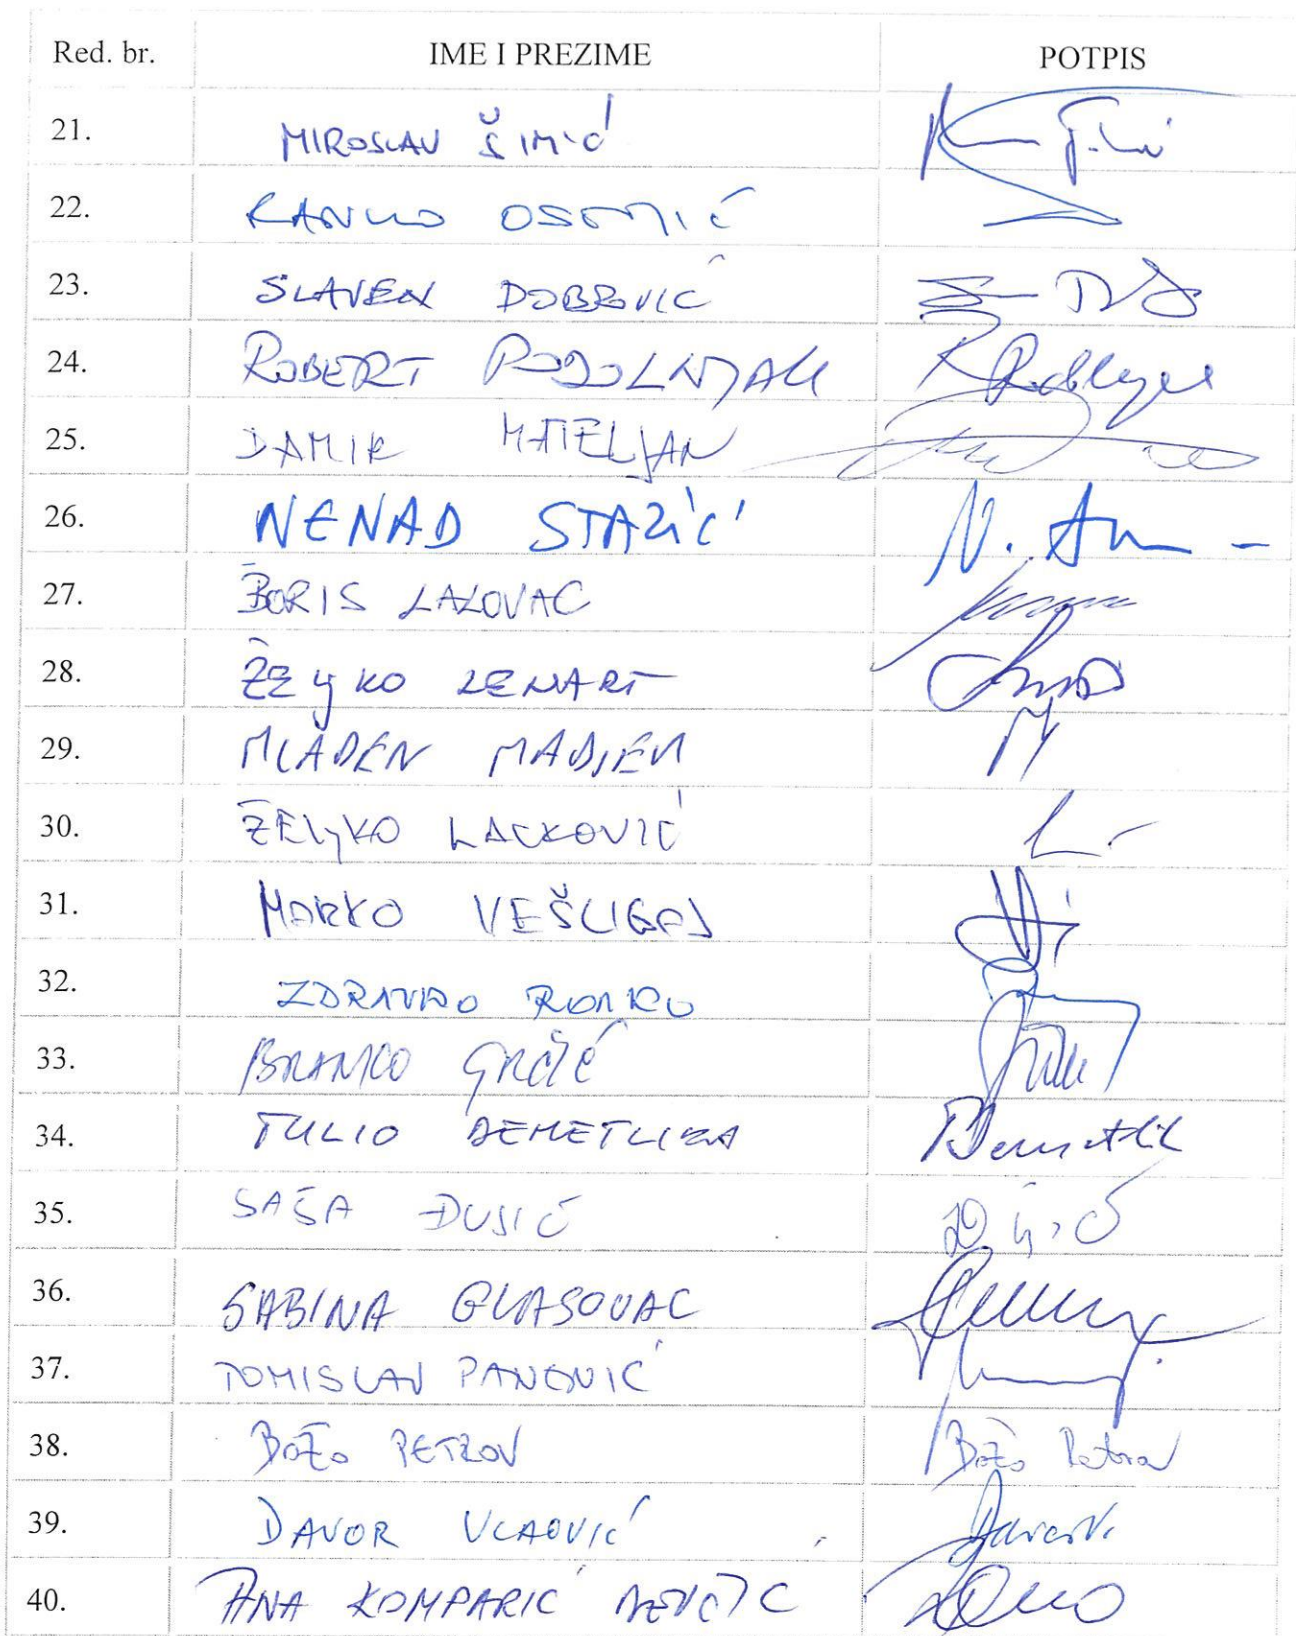 Red. br. IME I PREZIME POTPIS
21. MIROSLAV ŠIMIĆ
22. RANKO OSTOJIĆ
23. SLAVEN DOBROVIĆ
24. ROBERT PODOLNJAK
25. DAMIR MATELJAN
26. NENAD STAZIĆ N.
27. BORIS LALOVAC
28. ŽELJKO LENART
29. MLADEN MADJER
30. ŽELJKO LACKOVIĆ
31. MARKO VEŠLIGAJ
32. ZDRAVKO RONKO
33. BRANKO GRČIĆ
34. TULIO DEMETLIKA
35. SAŠA ĐUJIĆ
36. SABINA GLASOVAC
37. TOMISLAV PANENIĆ
38. BOŽO PETROV Božo Petrov
39. DAVOR VLAOVIĆ
40. ANA KOMPARIĆ DEVČIĆ